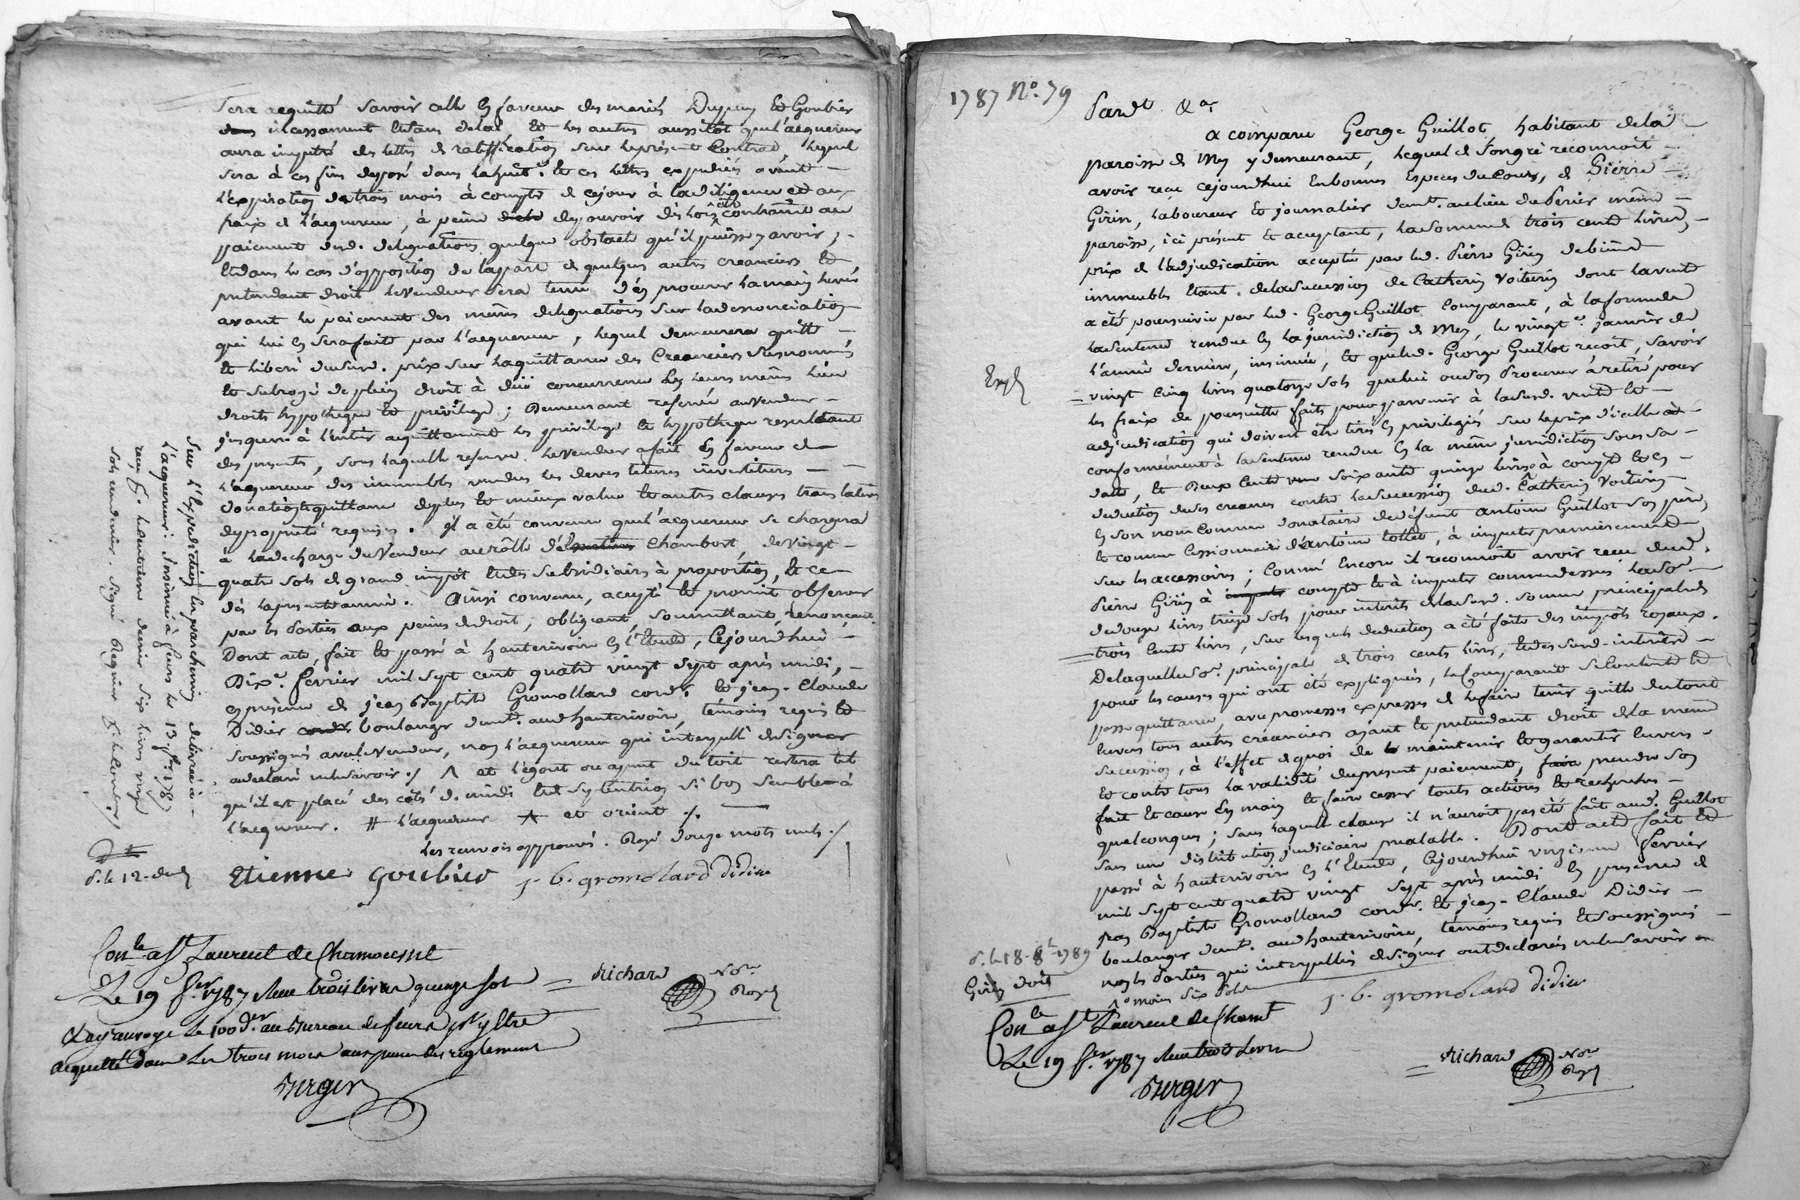 sera acquitté savoir celle en faveur des mariés Dupuy et Goubier
incessament et dans delai, et les autres aussitot que l'acquereur
aura impetré des lettres de ratiffication sur le présent Contrat, lequel
sera à ces fins deposé dans la huit.e et ces lettres expediées avant
l'expiration de trois mois à compter de cejour à la diligence et aux
fraix de l'acquereur, à peine de pouvoir dès lors être contraint au
paiement desd. delegations quelque obstacle qu'il puisse y avoir,
et dans le cas d'opposition de la part de quelques autres creanciers et
pretendant droit le vendeur sera tenu d'en procurer la main levée
avant le paiement des mêmes delegations sur la denonciation
qui lui en sera fait par l'acquereur, lequel demeurera quitte
et liberé dud. prix sur la quittance des Creanciers susnommés
et subrogé de plein droit à düe concurrence les leurs mêmes lieu
droits hypotheque et privilege; Demeurant reservée au vendeur
jusques à l'entier acquittement les privilege et hypotheque resultant
des presents, sous laquelle reserve le vendeur a fait en faveur de
l'acquereur des immeubles vendus les devestitures investitures
donation et quittance de plus et mieux value et autres clauses translatives
de proprieté requises. Il a été convenu que l'acquereur se chargera
à la decharge du Vendeur au rôlle de Chambost, de vingt
quatre sols de grand impôt et des subsidiaires à proportion, et ce
dès la presente année. Ainsi convenu, accepté et promit observer
par les Parties aux peines de droit, obligeant, soumettant, renonçant.
Dont acte, fait et passé à hauterivoire en l'Etude, Cejourd'hui
Dix.e fevrier mil sept cent quatre vingt sept après midi,
en présence de jean Baptiste Gromollard cord.r et jean-Claude
Didier boulanger demt. aud hauterivoire, témoins requis et
soussignés avec le vendeur, non l'acquereur qui interpellé de signer
a declaré ne le savoir ./. Λ et l'egout ou apent du toit restera tel
qu'il est placé des cotés de midi et septentrion si bon semble à
l'acquereur. # l'acquereur Λ et orient ./.
les renvois approuvés. Rayé douze mots nuls ./
Sur l'Expedition en parchemin delivrée à
l'acquereur: Insinué à feurs le 13 f.er 1787
reçu centieme denier six livres
sols six deniers. signé
P. le 12 dud
Etienne Goubier j. b. gromolard didier
Con.lé a St Laurent de Chamousset
Le 19 f.er 1787 Reçu trois livres quinze sols Richard No.re Royal
Lay renvoye le 100 d.er au Bureau de feurs p.r y Etre
acquitté dans les trois mois aux peines des reglement
Berger
1787 No. 79
Pardt &a.
a comparu George Guillot, habitant de la
paroisse de Mey y demeurant, lequel de son gré reconnoit
avoir reçu cejourdhui en bonnes Especes du Cours, de Pierre
Girin, laboureur et journalier demt. au lieu du Perier même
paroisse, ici présent et acceptant, la somme de trois cent livres,
prix de l'adjudication acceptée par led. Pierre Girin de biens
immeubles étant de la succession de Catherin Voiturin dont la vente
a été poursuivie par led. George Guillot Comparant, à la forme de
la sentence rendue en la jurisdiction de Mey, le vingt.e janvier de
l'année derniere, insinuée, et que led. George Guillot reçoit, savoir
vingt cinq livres quatorze sols que lui ou son Procureur à retiré pour
Exp.
les fraix de poursuitte faits pour parvenir à lad. vente et
adjudication qui doivent être tirés en privilegiés sur le prix d'icelle
conformement à la sentence rendue en la même jurisdiction sous sa
date, et Deux Cents soixante quinze livres à compte et en
deduction de ses creances contre la succession dud. Catherin Voiturin
en son nom comme donataire de defunt antoine Guillot son père,
et comme Cessionnaire d'antoine tollet, à imputer premierement
sur les accessoires; Comme Encore il reconnoit avoir reçu dud.
Pierre Girin à compte et à imputer comme dessus la so.e
de douze livres treize sols pour interets de lad. somme principale de
trois Cents livres, sur lesquels deduction a été faite des impôts royaux.
De laquelle so.e principale de trois cents livres, et desd. interets
pour les causes qui ont été expliquées, le Comparant se Contente et
passe quittance, avec promesses expresses de le faire tenir quitte du tout
envers tous autres créanciers ayant et pretendant droit de la même
succession, à l'effet de quoi de maintenir et garantir envers
et contre tous la validité du present paiement, prendre son
fait et cause en main et faire cesser touts actions et recherches
quelconques; sans laquelle clause il n'auroit pas été fait aud. Guillot
sans une distribution judiciaire prealable. Dont acte fait et
passé à hauterivoire en l'Etude, Cejourd'hui onzieme fevrier
mil sept cent quatre vingt sept après midi en presence de
jean Baptiste Gromollard cord.r et jean-Claude Didier
boulanger demt. aud hauterivoire, témoins requis et soussignés
non les Parties qui interpellées de signer ont declarés ne le savoir
P. le 18 - 8 - 1789
Girin doit
moins six sols
j. b. gromolard didier
Con.lé a St Laurent de Cham.t
Le 19 f.er 1787 Reçu trois Livres
Richard No.re Royal
Berger